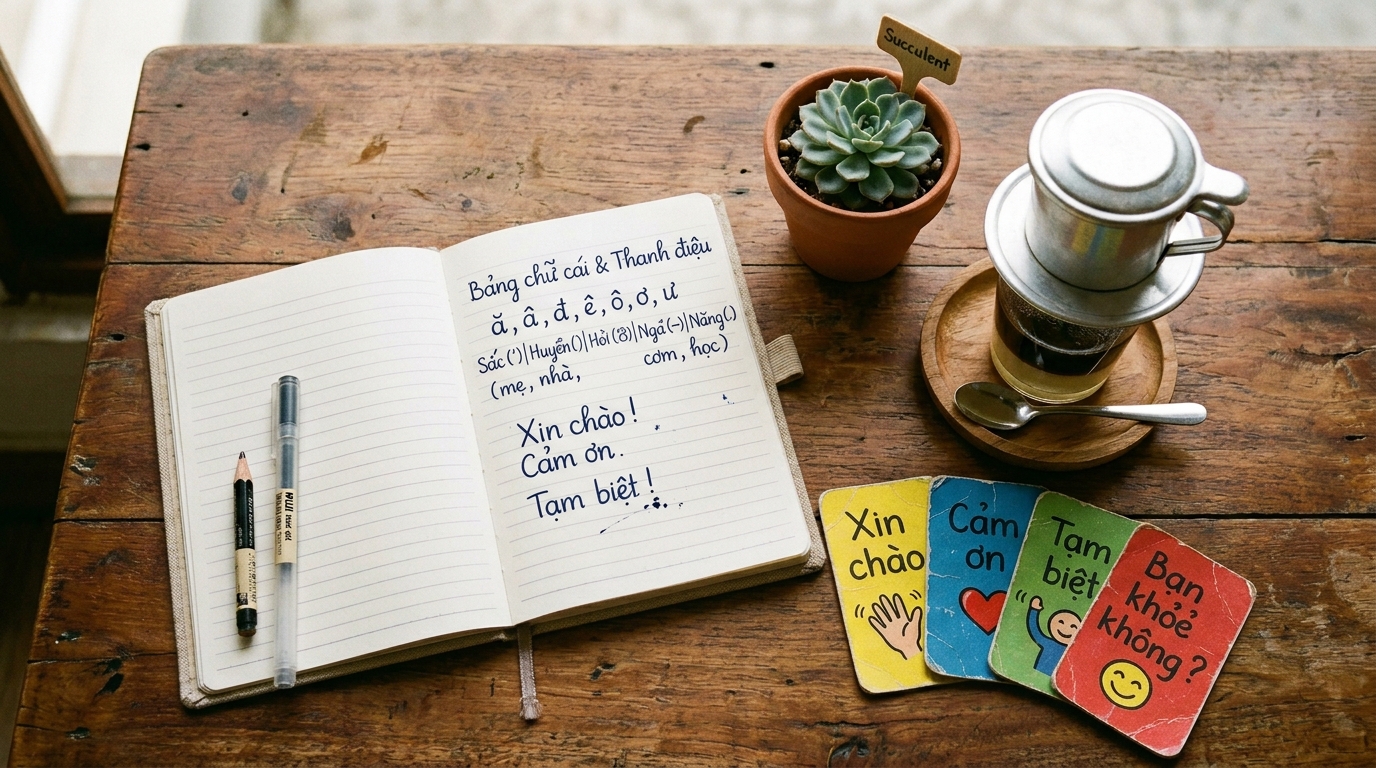 Bảng chữ cái & Thanh điệu
ă, â, đ, ê, ô, ơ, ư
Sắc (')|Huyền()|Hỏi (3)|Ngả (–)|Nặng(.)
(mẹ, nhà, cơm, học)
Xin chào!
Cảm ơn.
Tạm biệt!
Succulent
Xin
chào
Cảm
ơn
Tạm
biệt
Bạn
khỏẻ
không?